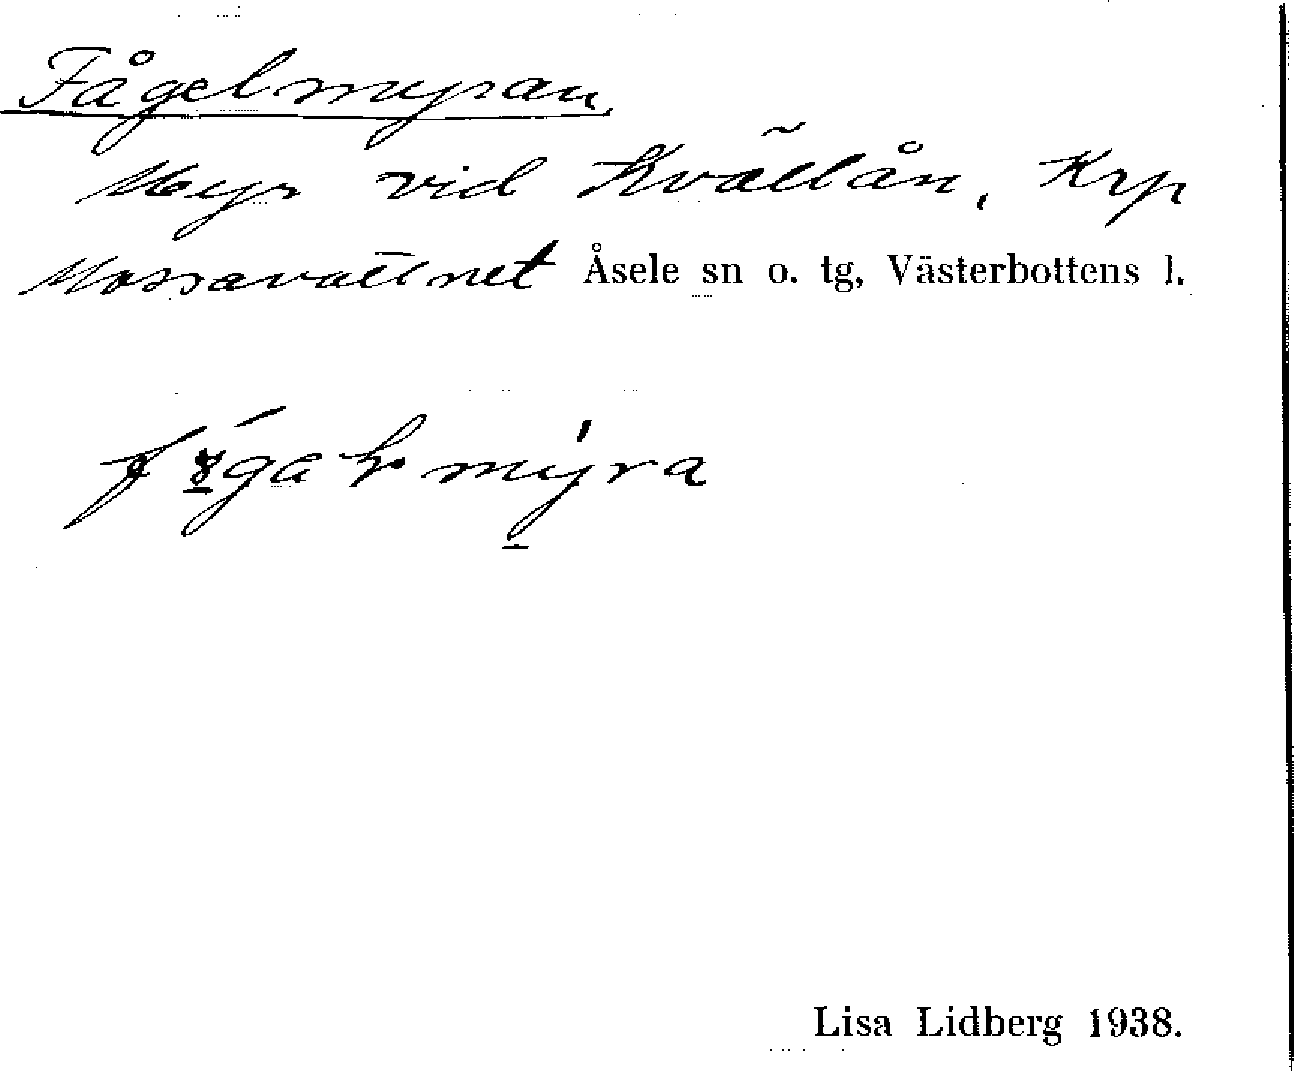 Fågelmyran.
Myr vid Kvällån, Krp
Mossavattnet Åsele sn o. tg, Västerbottens l.
Lisa Lidberg 1938.